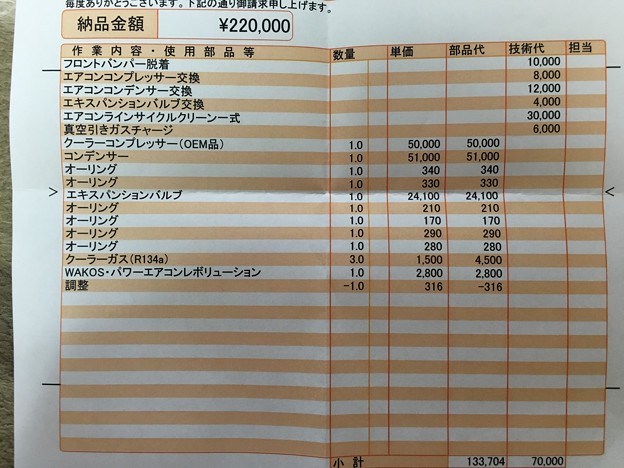 毎度ありがとうございます。下記の通り御請求申し上げます。
納品金額 ¥220,000
作業内容・使用部品等 数量 単価 部品代 技術代 担当
フロントバンパー脱着 10,000
エアコンコンプレッサー交換 8,000
エアコンコンデンサー交換 12,000
エキスパンションバルブ交換 4,000
エアコンラインサイクルクリーン一式 30,000
真空引きガスチャージ 6,000
クーラーコンプレッサー(OEM品) 1.0 50,000 50,000
コンデンサー 1.0 51,000 51,000
オーリング 1.0 340 340
オーリング 1.0 330 330
エキスパンションバルブ 1.0 24,100 24,100
オーリング 1.0 210 210
オーリング 1.0 170 170
オーリング 1.0 290 290
オーリング 1.0 280 280
クーラーガス(R134a) 3.0 1,500 4,500
WAKOS・パワーエアコンレボリューション 1.0 2,800 2,800
調整 -1.0 316 -316
小計 133,704 70,000